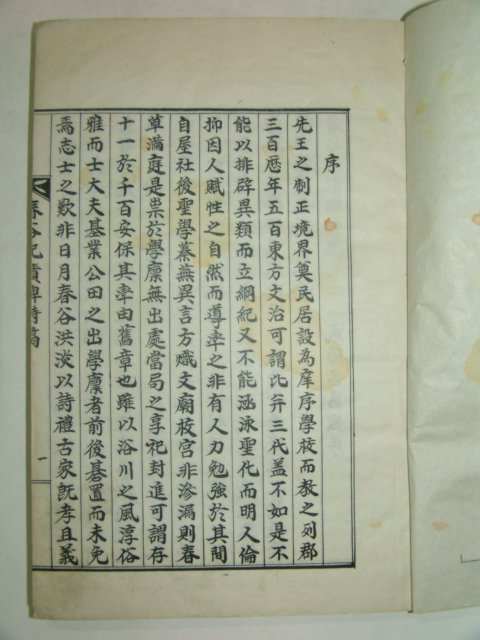 序
先王之制正境界奠民居設為庠序學校而教之列郡
三百歷年五百東方文治可謂比弁三代盖不如是不
能以排辟異類而立綱紀又不能涵泳聖化而明人倫
抑因人賦性之自然而導率之非有人力勉強於其間
自屋社後聖學蓁蕪異言方熾文廟校宮非滲漏則春
草滿庭是祟於學廩無出處當局之享祀封進可謂存
十一於千百安保其率由舊章也雖以浴川之風淳俗
雅而士大夫基業公田之出學廩者前後碁置而未免
焉志士之歎非日月春谷洪淡以詩禮古家旣孝且義
春谷紀蹟碑詩稿
一